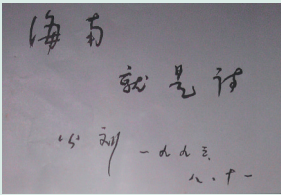 海南
就是诗
公刘 一九九三,
八.十一